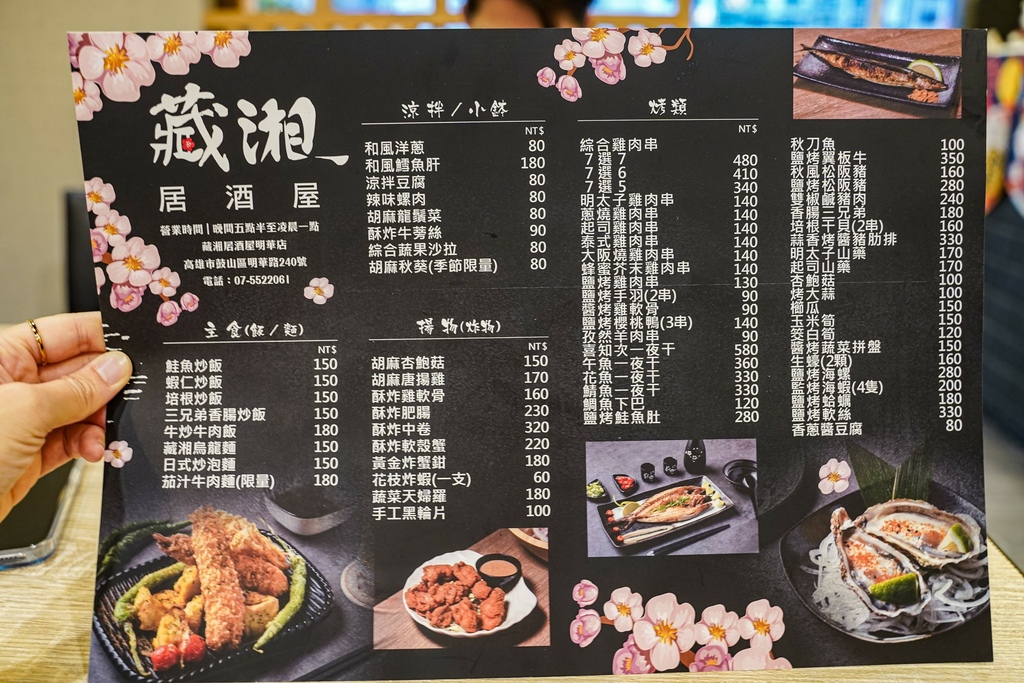 藏湘
居酒屋
營業時間｜晚間五點半至凌晨一點
藏湘居酒屋明華店
高雄市鼓山區明華路240號
電話：07-5522061
主食(飯／麵)
NT$
鮭魚炒飯 150
蝦仁炒飯 150
培根炒飯 150
三兄弟香腸炒飯 150
牛炒牛肉飯 180
藏湘烏龍麵 150
日式炒泡麵 150
茄汁牛肉麵(限量) 180
涼拌／小缽
NT$
和風洋蔥 80
和風鱈魚肝 180
涼拌豆腐 80
辣味螺肉 80
胡麻龍鬚菜 80
酥炸牛蒡絲 90
綜合蔬果沙拉 80
胡麻秋葵(季節限量) 80
揚物(炸物)
NT$
胡麻杏鮑菇 150
胡麻唐揚雞 170
酥炸雞軟骨 160
酥炸肥腸 230
酥炸中卷 320
酥炸軟殼蟹 220
黃金炸蟹鉗 180
花枝炸蝦(一支) 60
蔬菜天婦羅 180
手工黑輪片 100
烤類
NT$
綜合雞肉串
7選7 480
7選6 410
7選5 340
明太子雞肉串 140
蔥燒雞肉串 140
起司雞肉串 140
泰式雞肉串 140
大阪燒雞肉串 140
蜂蜜芥末雞肉串 140
鹽烤雞肉串 130
鹽烤手羽(2串) 90
醬烤雞軟骨 90
鹽烤櫻桃鴨(3串) 140
孜然羊肉串 90
喜知次一夜干 580
午魚一夜干 360
花魚一夜干 330
鯖魚一夜干 330
鯛魚下巴 120
鹽烤鮭魚肚 280
秋刀魚 100
鹽烤翼板牛 350
秋風松阪豬 160
鹽烤松阪豬 280
雙椒鹹豬肉 240
香腸三兄弟 180
培根干貝(2串) 160
蒜香烤醬豬肋排 330
明太子山藥 170
起司山藥 170
杏鮑菇 100
烤大蒜 100
櫛瓜 150
玉米筍 150
茭白筍 120
醬烤蔬菜拼盤 150
生蠔(2顆) 160
鹽烤海螺 280
監烤海蝦(4隻) 200
鹽烤蛤蠣 180
鹽烤軟絲 330
香蔥醬豆腐 80